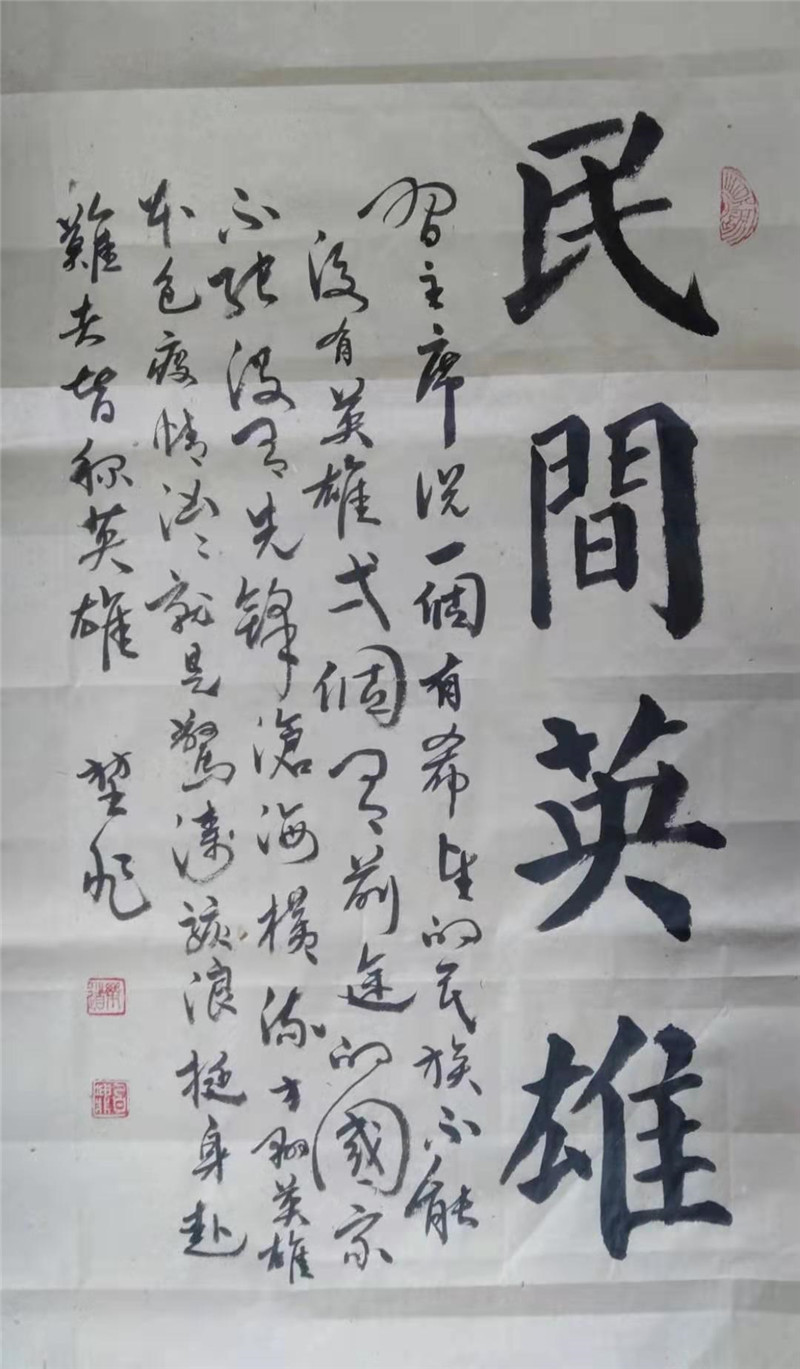 民間英雄
習主席说一個有希望的民族不能
没有英雄一個有前途的國家
不能没有先鋒滄海橫流方顯英雄
本色疫情洶洶就是驚濤駭浪挺身赴
難者皆称英雄